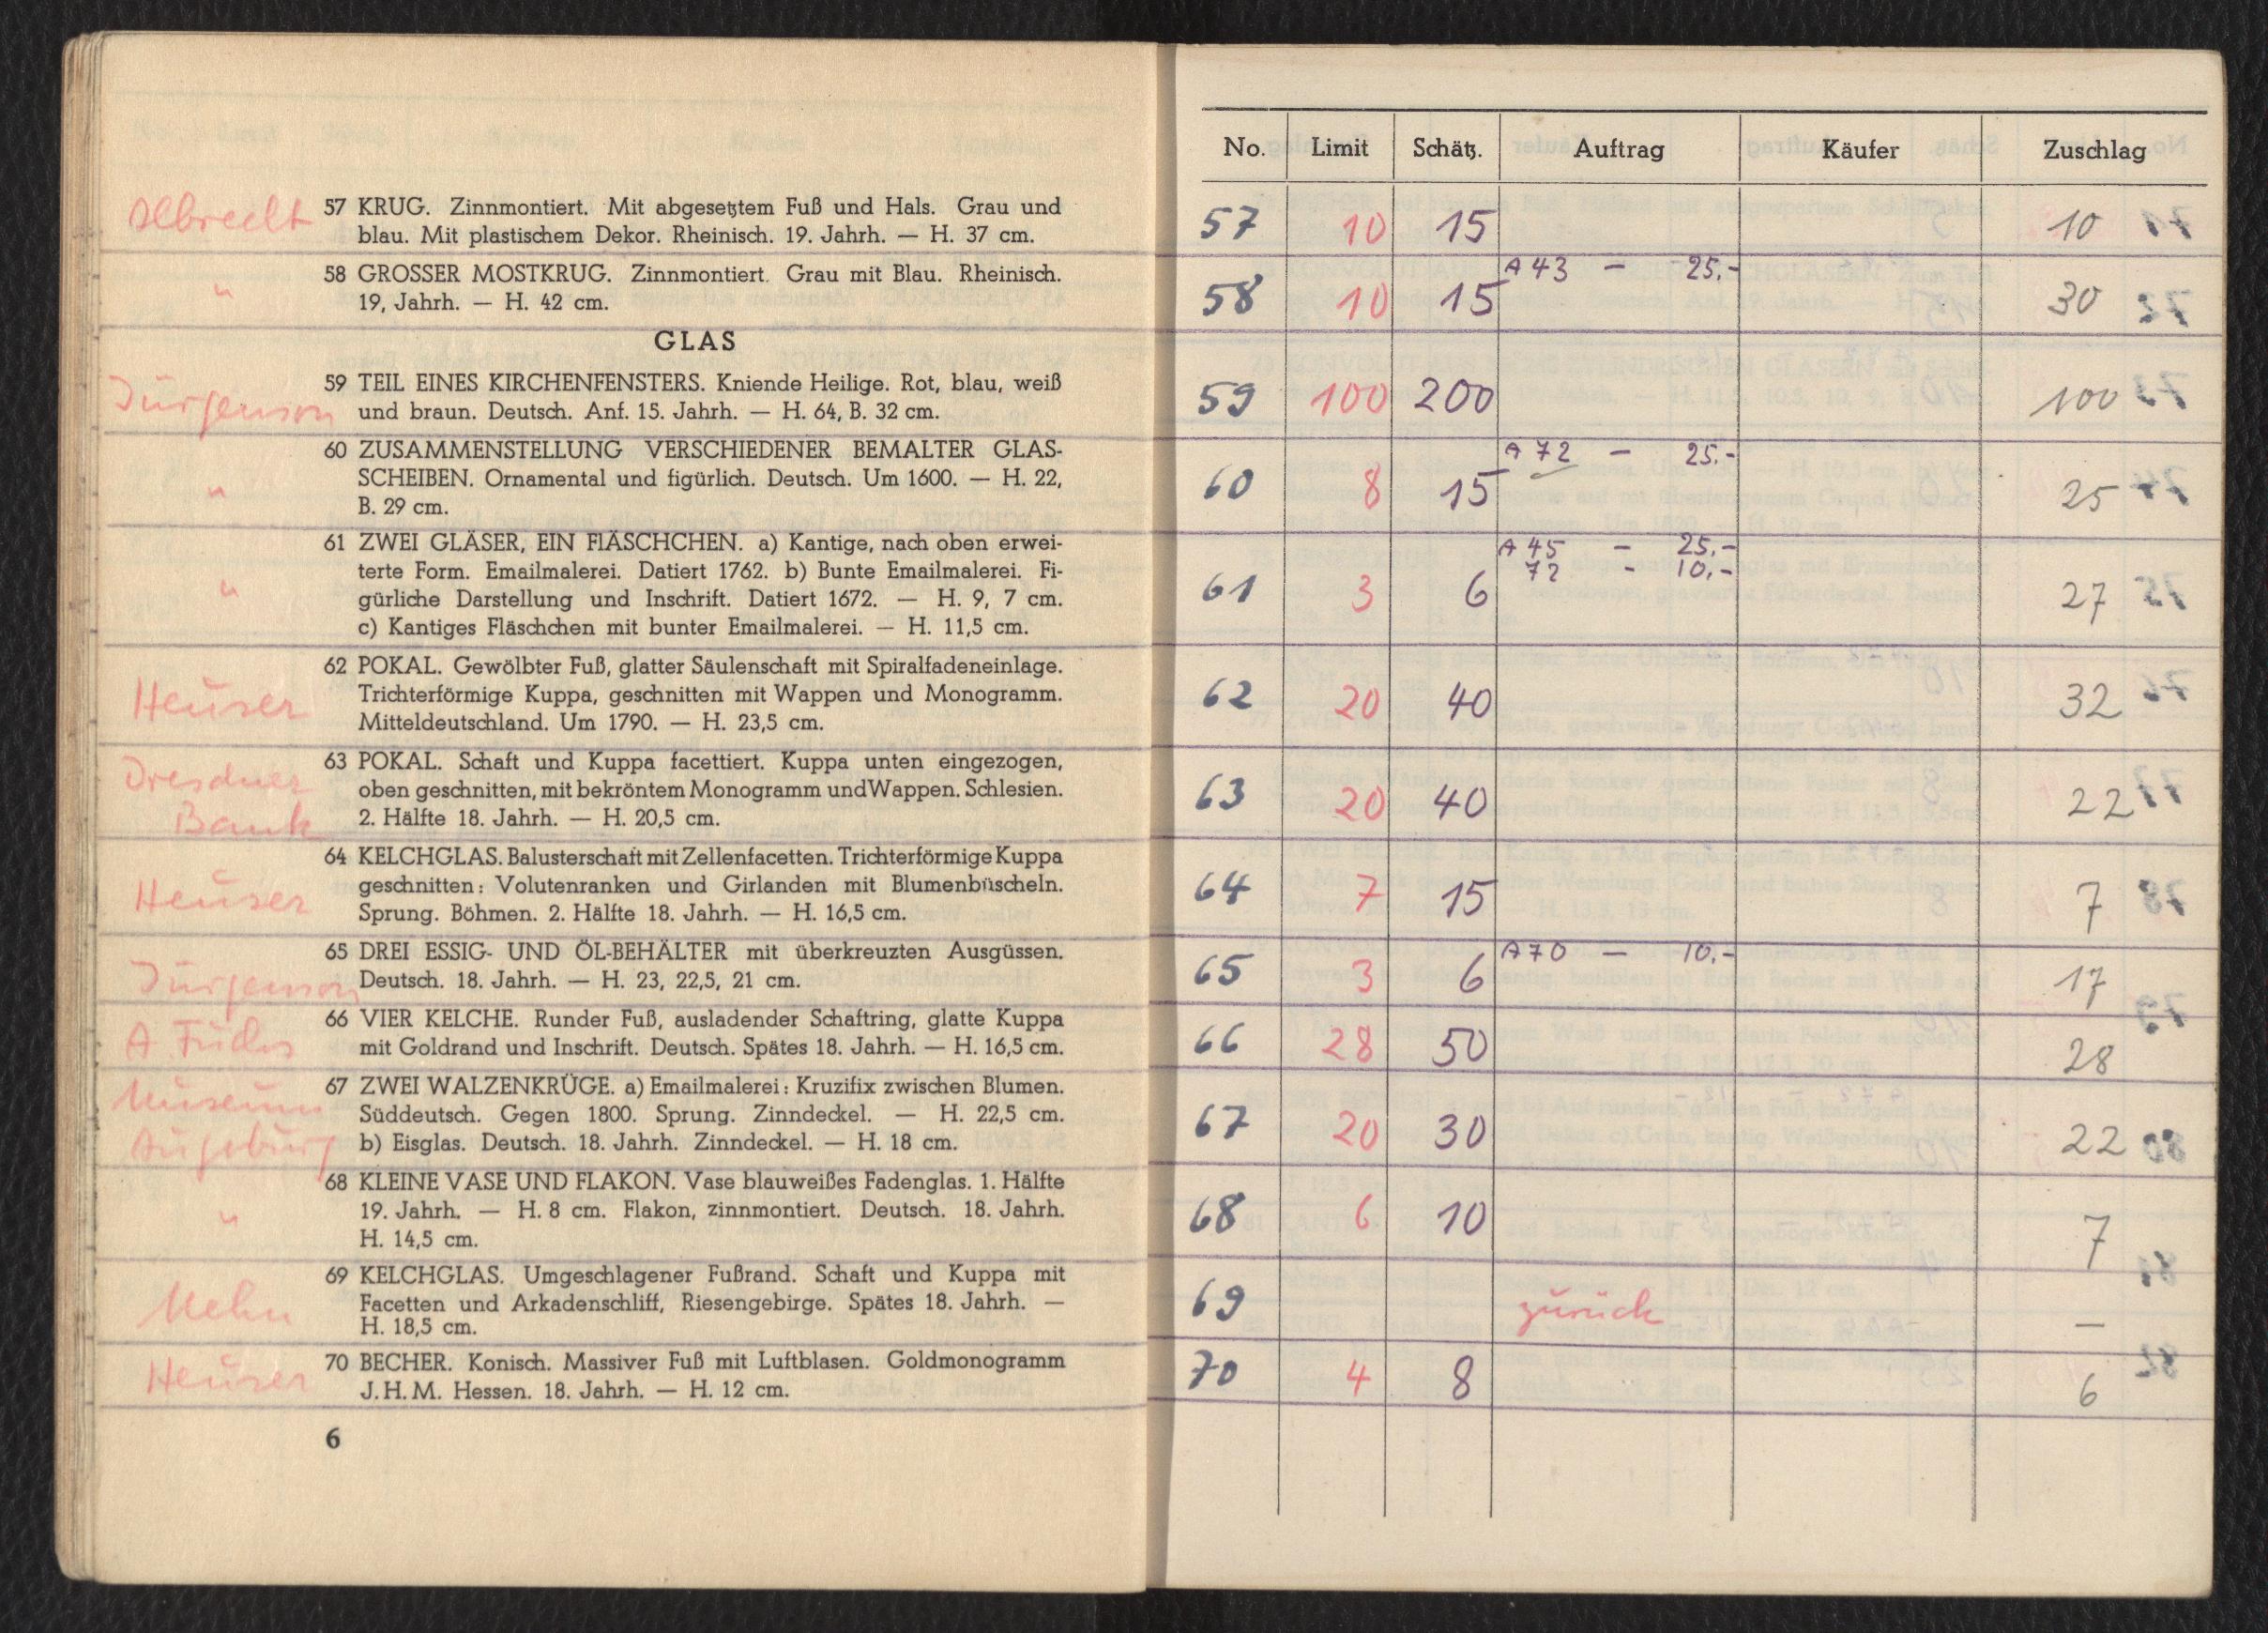 Albrecht
57 KRUG. Zinnmontiert. Mit abgesetztem Fuß und Hals. Grau und
blau. Mit plastischem Dekor. Rheinisch. 19. Jahrh. — H. 37 cm.
"
58 GROSSER MOSTKRUG. Zinnmontiert. Grau mit Blau. Rheinisch.
19, Jahrh. — H. 42 cm.
GLAS
Jürgenson
59 TEIL EINES KIRCHENFENSTERS. Kniende Heilige. Rot, blau, weiß
und braun. Deutsch. Anf. 15. Jahrh. — H. 64, B. 32 cm.
"
60 ZUSAMMENSTELLUNG VERSCHIEDENER BEMALTER GLAS-
SCHEIBEN. Ornamental und figürlich. Deutsch. Um 1600. — H. 22,
B. 29 cm.
"
61 ZWEI GLÄSER, EIN FLÄSCHCHEN. a) Kantige, nach oben erwei-
terte Form. Emailmalerei. Datiert 1762. b) Bunte Emailmalerei. Fi-
gürliche Darstellung und Inschrift. Datiert 1672. — H. 9, 7 cm.
c) Kantiges Fläschchen mit bunter Emailmalerei. — H. 11,5 cm.
Heuser
62 POKAL. Gewölbter Fuß, glatter Säulenschaft mit Spiralfadeneinlage.
Trichterförmige Kuppa, geschnitten mit Wappen und Monogramm.
Mitteldeutschland. Um 1790. — H. 23,5 cm.
Dresdner
Bank
63 POKAL. Schaft und Kuppa facettiert. Kuppa unten eingezogen,
oben geschnitten, mit bekröntem Monogramm und Wappen. Schlesien.
2. Hälfte 18. Jahrh. — H. 20,5 cm.
Heuser
64 KELCHGLAS. Balusterschaft mit Zellenfacetten. Trichterförmige Kuppa
geschnitten: Volutenranken und Girlanden mit Blumenbüscheln.
Sprung. Böhmen. 2. Hälfte 18. Jahrh. — H. 16,5 cm.
Jürgenson
65 DREI ESSIG- UND ÖL-BEHÄLTER mit überkreuzten Ausgüssen.
Deutsch. 18. Jahrh. — H. 23, 22,5, 21 cm.
66 VIER KELCHE. Runder Fuß, ausladender Schaftring, glatte Kuppa
mit Goldrand und Inschrift. Deutsch. Spätes 18. Jahrh. — H. 16,5 cm.
Museum
Augsburg
67 ZWEI WALZENKRÜGE. a) Emailmalerei: Kruzifix zwischen Blumen.
Süddeutsch. Gegen 1800. Sprung. Zinndeckel. — H. 22,5 cm.
b) Eisglas. Deutsch. 18. Jahrh. Zinndeckel. — H. 18 cm.
"
68 KLEINE VASE UND FLAKON. Vase blauweißes Fadenglas. 1. Hälfte
19. Jahrh. — H. 8 cm. Flakon, zinnmontiert. Deutsch. 18. Jahrh.
H. 14,5 cm.
69 KELCHGLAS. Umgeschlagener Fußrand. Schaft und Kuppa mit
Facetten und Arkadenschliff, Riesengebirge. Spätes 18. Jahrh. —
H. 18,5 cm.
Heuser
70 BECHER. Konisch. Massiver Fuß mit Luftblasen. Goldmonogramm
J. H. M. Hessen. 18. Jahrh. — H. 12 cm.
6
No. Limit Schätz. Auftrag Käufer Zuschlag
57 10 15 10
A 43 — 25.-
58 10 15 30
59 100 200 100
A 72 — 25.-
60 8 15 25
A 45 — 25.-
72 - 10.-
61 3 6 27
62 20 40 32
63 20 40 22
64 7 15 7
A 70 — 10.-
65 3 6 17
66 28 50 28
67 20 30 22
68 6 10 7
69 zurück —
70 4 8 6